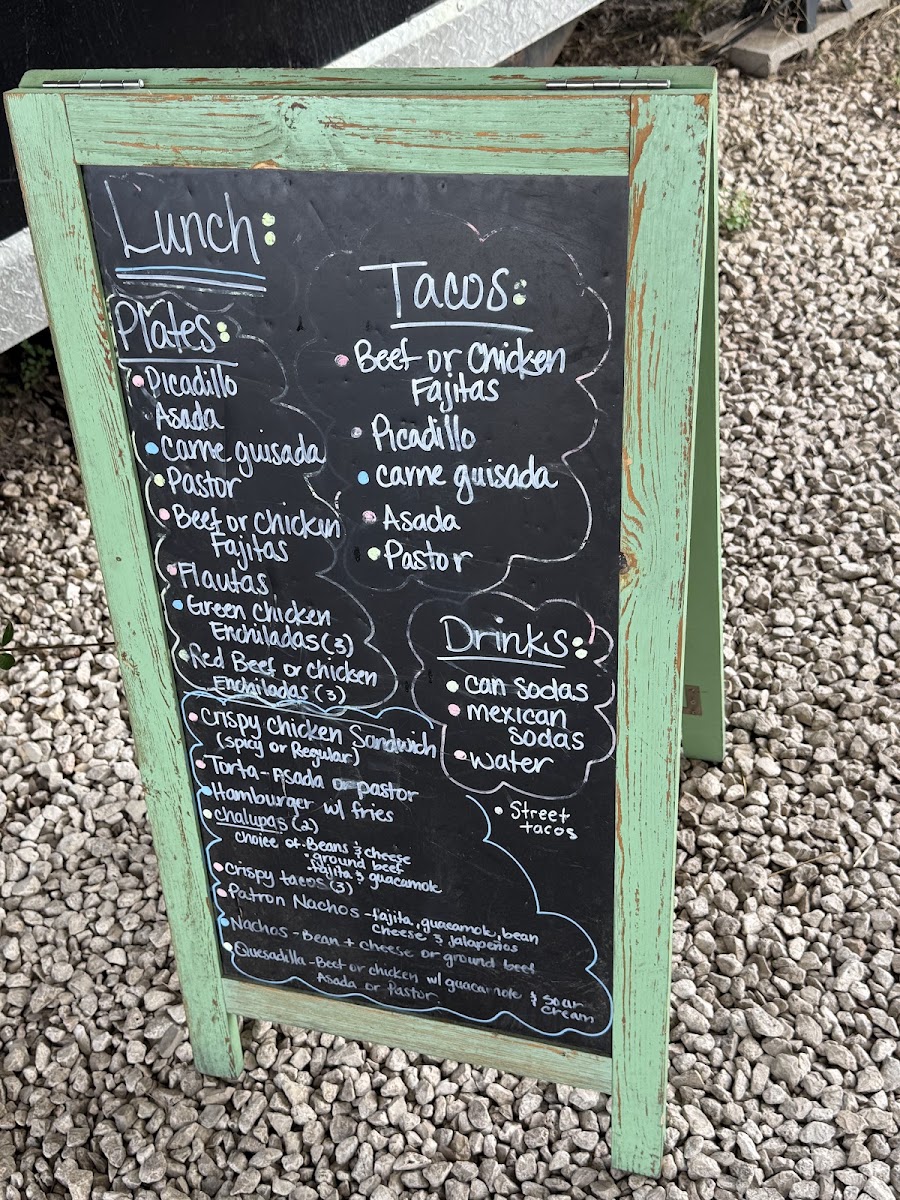 Lunch:
Plates:
Picadillo
Asada
carne guisada
Pastor
Beef or chicken
Fajitas
Flautas
Green chicken
Enchiladas (3)
Red Beef or chicken
Enchiladas (3)
Crispy Chicken Sandwich
(spicy or Regular)
Torta - Asada or pastor
Hamburger w/ fries
chalupas (2)
choice of - Beans & cheese
• ground beef
• fajita & guacamole
crispy tacos (3)
Patron Nachos - fajita, guacamole, bean
cheese & jalapeños
Nachos - Bean + cheese or ground beef
Quesadilla - Beef or chicken w/ guacamole & sour
cream
Asada or Pastor
Tacos:
Beef or Chicken
Fajitas
Picadillo
carne guisada
Asada
Pastor
Drinks:
can sodas
mexican
sodas
water
• Street
tacos